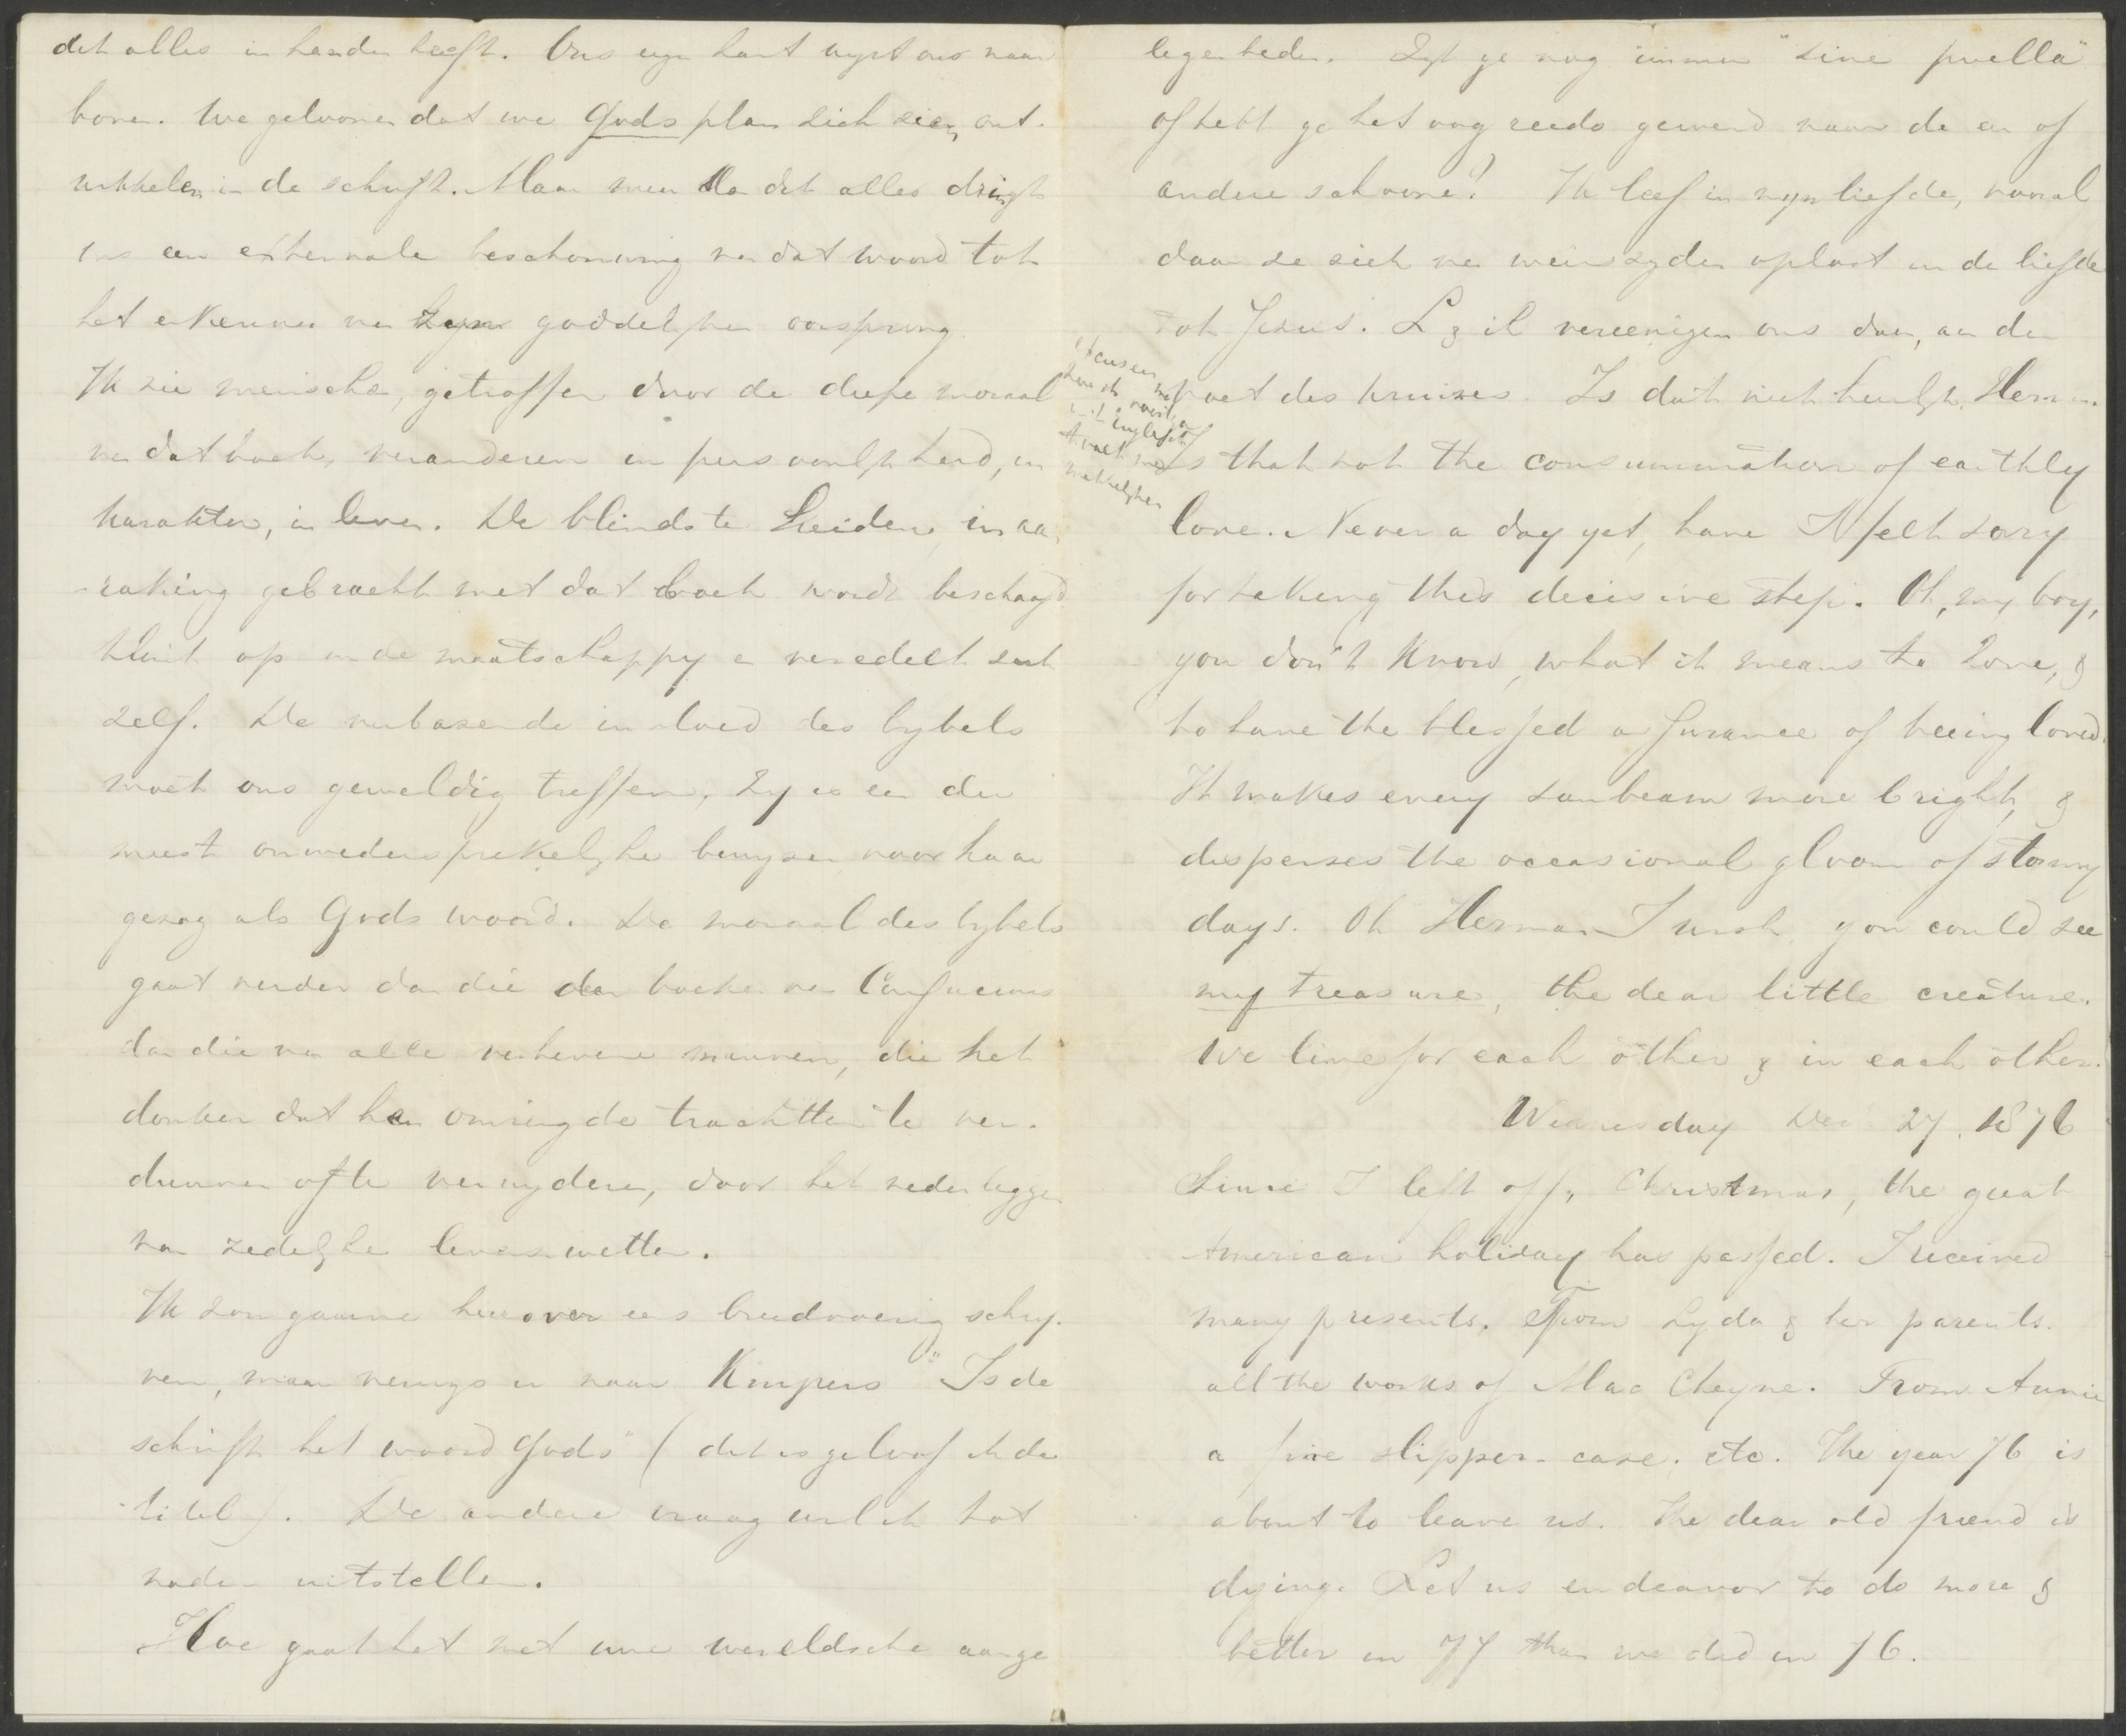 dit alles in handen heeft. Ons eigen hart wyst ons naar
boven. We gelooven dat we Gods plan zich zien ont-
wikkelen in de schrift. Maar meer dan dit alles dringt
ons een externale beschouwing van dat woord tot
het erkennen van zyn goddelyken oorsprong.
Ik zie menschen, getroffen door de diepe moraal
van dat boek, veranderen in persoonlykheid, in
karakter, in leven. De blindste heiden, in aan-
-raking gebracht met dat boek wordt beschaafd
klimt op in de maatschappy en veredelt zich
zelf. De verbazende invloed des bybels
moet ons geweldig treffen. Zy is een der
meest onwedersprekelyke bewyzen voor haar
gezag als Gods woord. De moraal des bybels
gaat verder dan die der boeken van Confucius
dan die van alle verhevene mannen, die het
donker dat hen omringde trachtten te ver-
dunnen of te verwyderen, door het nederleggen
van zedelyke levenswetten.
Ik zou gaarne hierover eens breedvoerig schry-
ven, maar verwys u naar Kuypers "Is de
schrift het woord Gods" (dit is geloof ik de
titel). De andere vraag wil ik tot
nader uitstellen.
Hoe gaat het met uwe wereldsche aange
legenheden. Zyt ge nog immer "sine puella"
of hebt ge het oog reeds gewend naar de een of
andere schoone? Ik leef in myn liefde, vooral
daar ze zich van weerszyden oplost in de liefde
tot Jezus. L & ik vereenigen ons dan, aan den
voet des kruises. Is dat niet heerlyk, Herman.
excuseer me
hier ik
in 't engelsch
makkelyker
Is that not the consummation of earthly
love. Never a day yet, have I felt sorry
for taking this decisive step. Oh, my boy,
you don't know, what it means to love, &
to have the blessed assurance of being loved.
It makes every sunbeam more bright, &
disperses the occasional gloom of stormy
days. Oh Herman I wish you could see
my treasure, the dear little creature.
We live for each other & in each other.
Wednesday Dec 27. 1876
Since I left off, Christmas, the great
American holiday has passed. I received
many presents. From Lyda & her parents.
all the works of Mac Cheyne. From Annie
a fine slipper-case. etc. The year 76 is
about to leave us. The dear old friend is
dying. Let us endeavor to do more &
better in 77 than we did in 76.